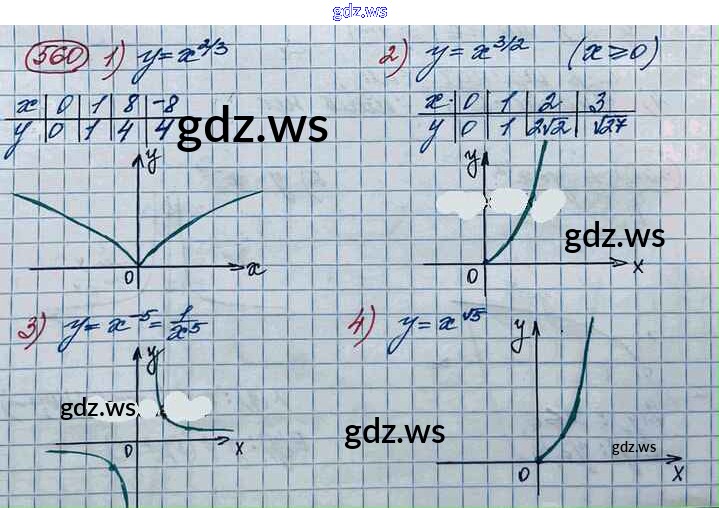 gdz.ws
560 1) y = x^2/3
x | 0 | 1 | 8 | -8
y | 0 | 1 | 4 | 4
gdz.ws
y
0
x
2) y = x^3/2 (x ≥ 0)
x | 0 | 1 | 2 | 3
y | 0 | 1 | 2√2 | √27
y
gdz.ws
0
x
3) y = x^-5 = 1/x^5
y
gdz.ws
0
x
4) y = x^√5
y
gdz.ws
gdz.ws
0
x